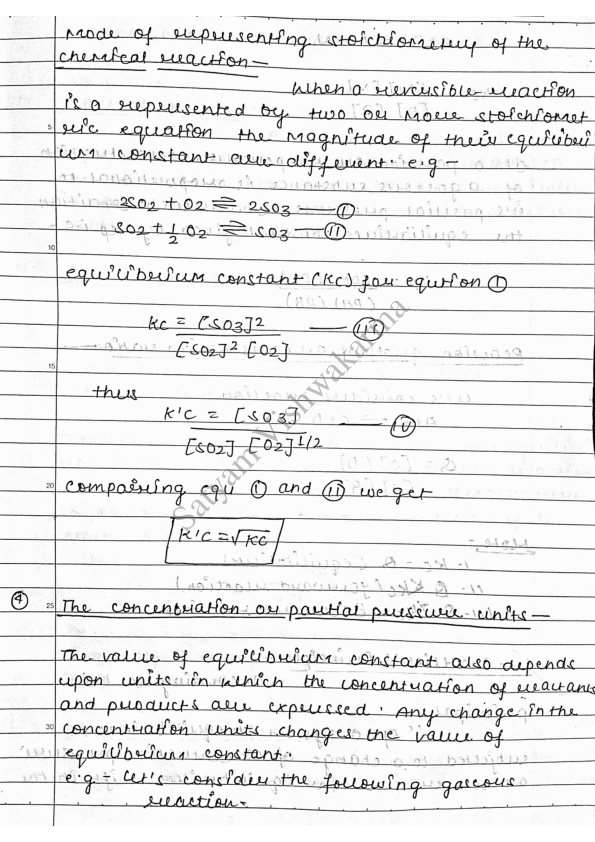 Mode of representing stoichiometry of the
chemical reaction —
When a reversible reaction
is a represented by two or more stoichiomet
ric equation the magnitude of their equilibri
um constant are different. e.g —
2SO2 + O2 ⇌ 2SO3 — (I)
SO2 + 1/2 O2 ⇌ SO3 — (II)
equilibrium constant (KC) for eqution (I)
KC = [SO3]2 / [SO2]2 [O2] — (III)
thus
K'C = [SO3] / [SO2] [O2]1/2 — (IV)
compairing equ (I) and (II) we get
K'C = √KC
(4) The concentration or partial pressure units —
The value of equilibrium constant also depends
upon units in which the concentration of reactants
and products are expressed. Any change in the
concentration units changes the value of
equilibrium constant.
e.g - let's consider the following gaseous
reaction.
5
10
15
20
25
30
Satyam Vishwakarma